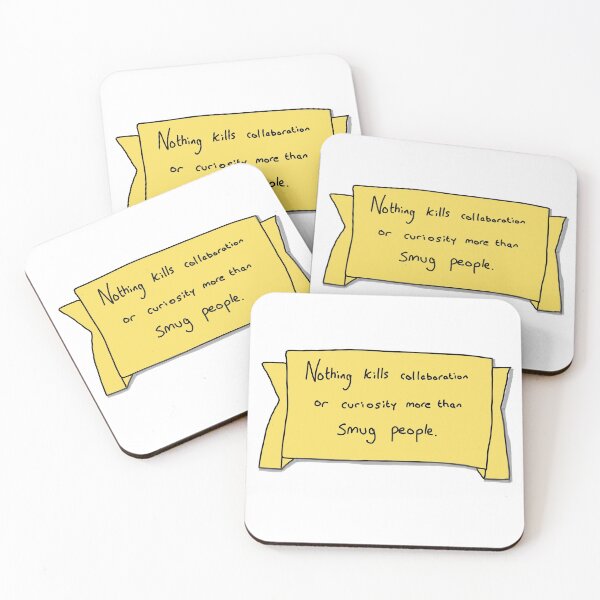 Nothing kills collaboration
or curiosity more than
Nothing kills collaboration
or curiosity more than
smug people.
Nothing kills collaboration
or curiosity more than
smug people.
Nothing kills collaboration
or curiosity more than
smug people.